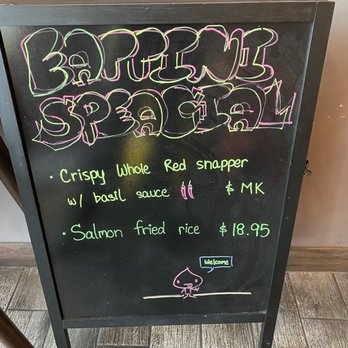 EATPINI
SPEACIAL
• Crispy Whole Red snapper
w/ basil sauce $ MK
• Salmon fried rice $18.95
Welcome